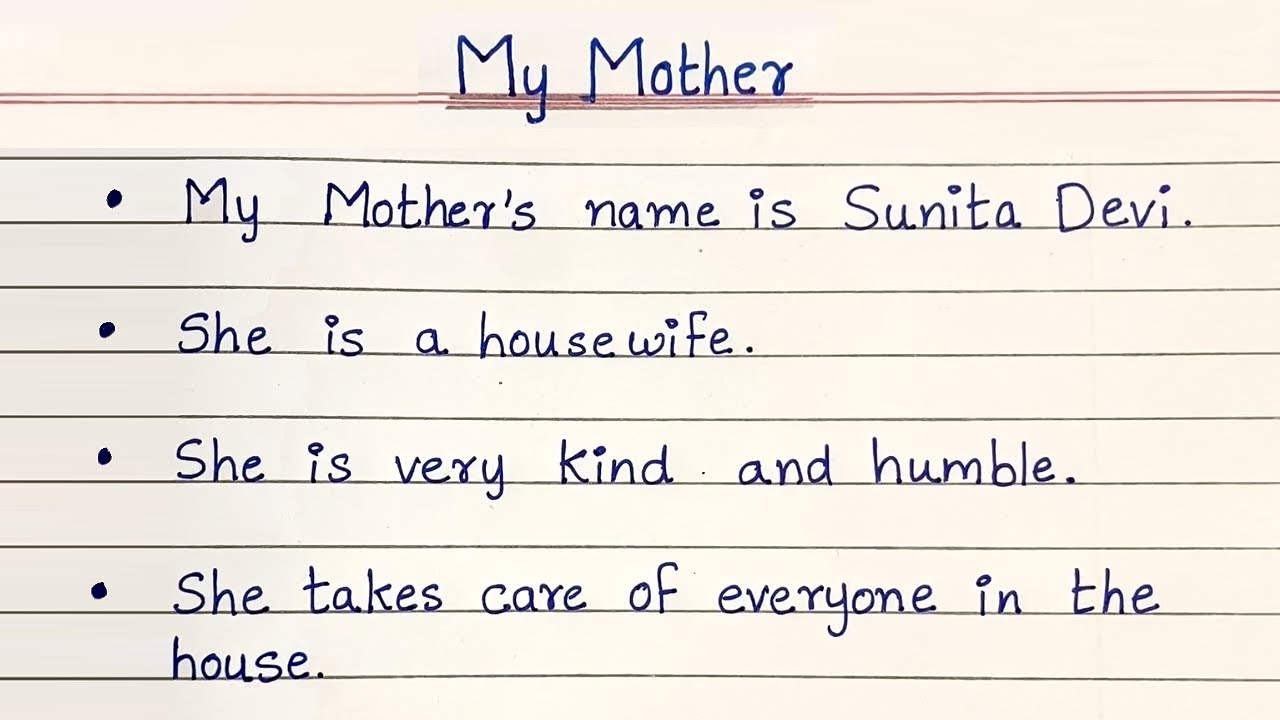 My Mother
• My Mother's name is Sunita Devi.
• She is a housewife.
• She is very kind and humble.
• She takes care of everyone in the
house.